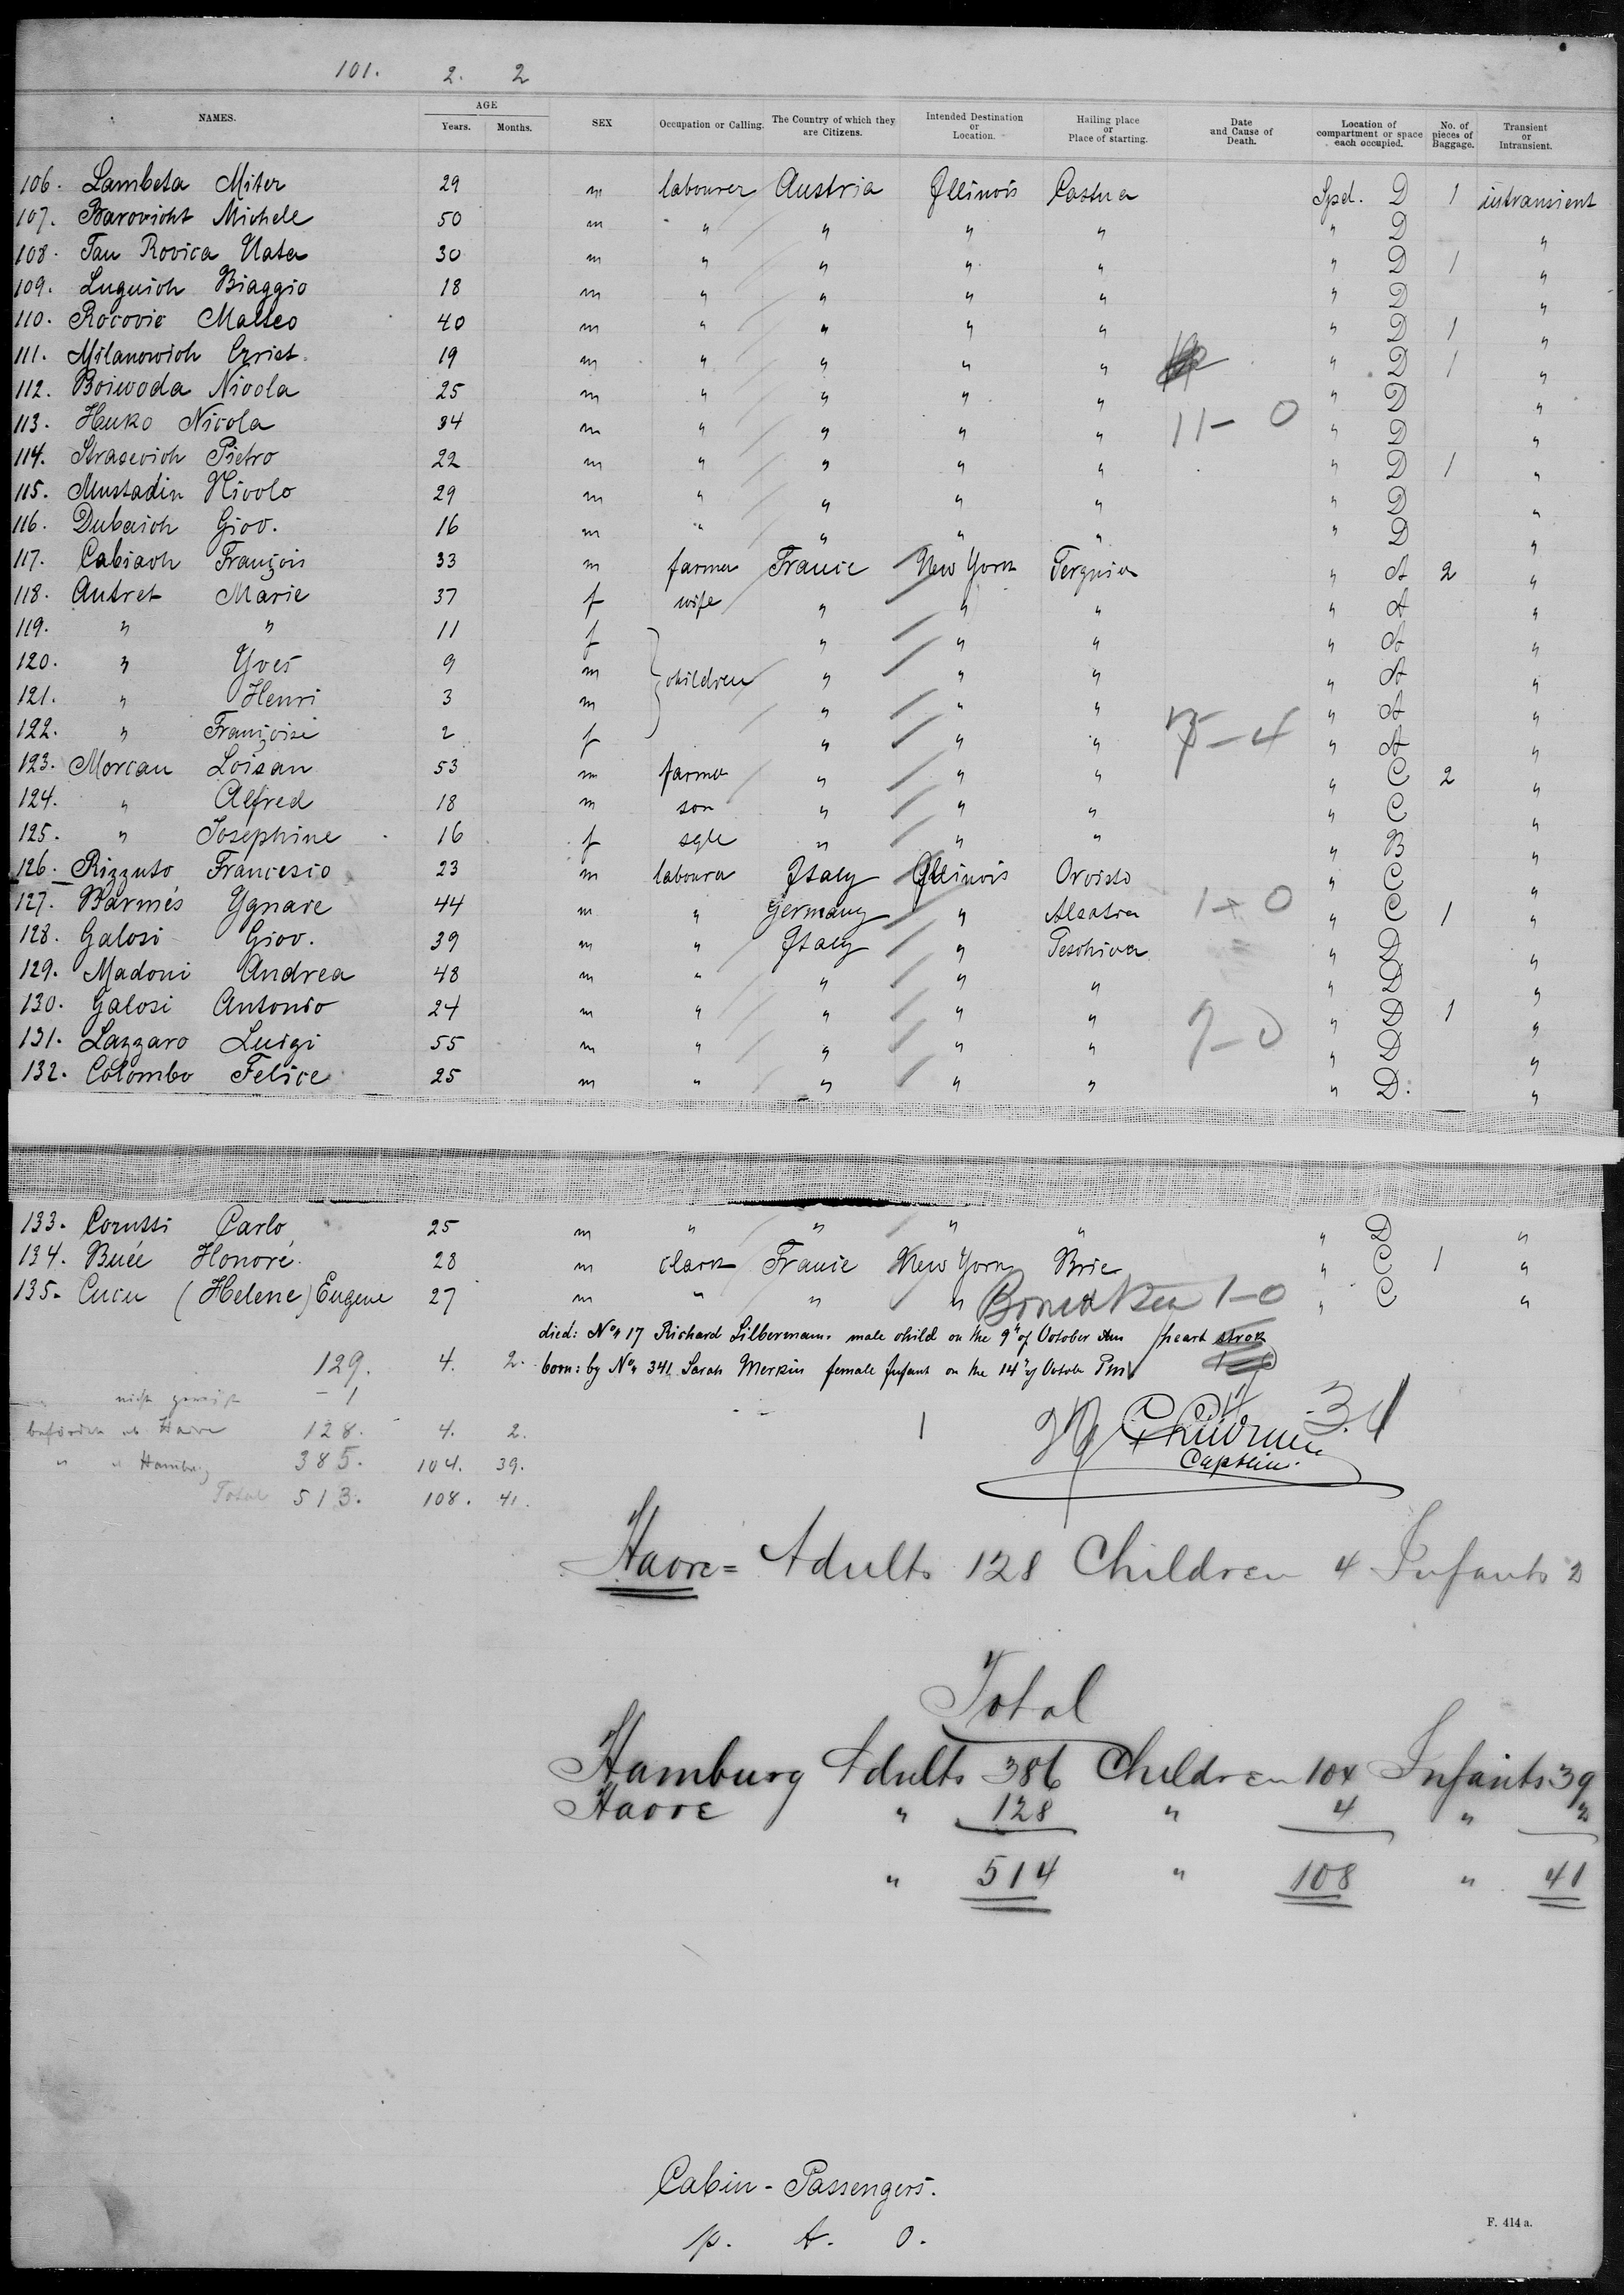 101. 2. 2
NAMES. AGE Years. Months. SEX Occupation or Calling. The Country of which they are Citizens. Intended Destination or Location. Hailing place or Place of starting. Date and Cause of Death. Location of compartment or space each occupied. No. of pieces of Baggage. Transient or Intransient.
106. Lambeta Miter 29 m labourer Austria Illinois Castua Spd. D 1 intransient
107. Barovicht Michele 50 m " " " " " D "
108. Tan Rovica Nata 30 m " " " " " D 1 "
109. Luguich Biaggio 18 m " " " " " D "
110. Rocovic Matteo 40 m " " " " " D 1 "
111. Milanowich Crist. 19 m " " " " " D 1 "
112. Boiwoda Nicola 25 m " " " " " D "
113. Huko Nicola 34 m " " " " 11-0 " D "
114. Strasevich Pietro 22 m " " " " " D 1 "
115. Mustadin Nicolo 29 m " " " " " D "
116. Dubaich Giov. 16 m " " " " " D "
117. Cabiach François 33 m farmer France New York Tergnier " A 2 "
118. Autret Marie 37 f wife " " " " A "
119. " " 11 f " " " " A "
120. " Yves 9 m children " " " " A "
121. " Henri 3 m " " " " A "
122. " Françoise 2 f " " " -4 " A "
123. Morcau Loisan 53 m farmer " " " " C 2 "
124. " Alfred 18 m son " " " " C "
125. " Josephine 16 f sgle " " " " B "
126. Rizzuto Francesco 23 m labourer Italy Illinois Orvisto " C "
127. Barmés Ygnace 44 m " Germany " Alsatia 1-0 " C 1 "
128. Galosi Giov. 39 m " Italy " Peschiera " D "
129. Madoni Andrea 48 m " " " " " D "
130. Galosi Antonio 24 m " " " " " D 1 "
131. Lazzaro Luigi 55 m " " " " -0 " D "
132. Colombo Felice 25 m " " " " " D. "
133. Corussi Carlo 25 m " " " " " D "
134. Buée Honoré 28 m clark France New York Brie " C 1 "
135. Cucu (Helene) Eugene 27 m " " " 1-0 " C "
died: No. 17 Richard Silbermann. male child on the 9th of October Am /heart strok
129. 4. 2. born: by No. 341 Sarah Merkin female Infant on the 14th of Octob Pm
nicht gereist - 1
befördert ab Havre 128. 4. 2. 1
" " Hamburg 385. 104. 39. Captein.
Total 513. 108. 41.
Havre = Adults 128 Children 4 Infants 2
Total
Hamburg Adults 386 Children 104 Infants 39
Havre " 128 " 4 " 2
" 514 " 108 " 41
Cabin-Passengers.
p. t. o.
F. 414 a.